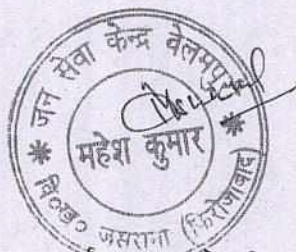 जन सेवा केन्द्र वेलमपुर
महेश कुमार
वि०ख० जसराना (फिरोजाबाद)